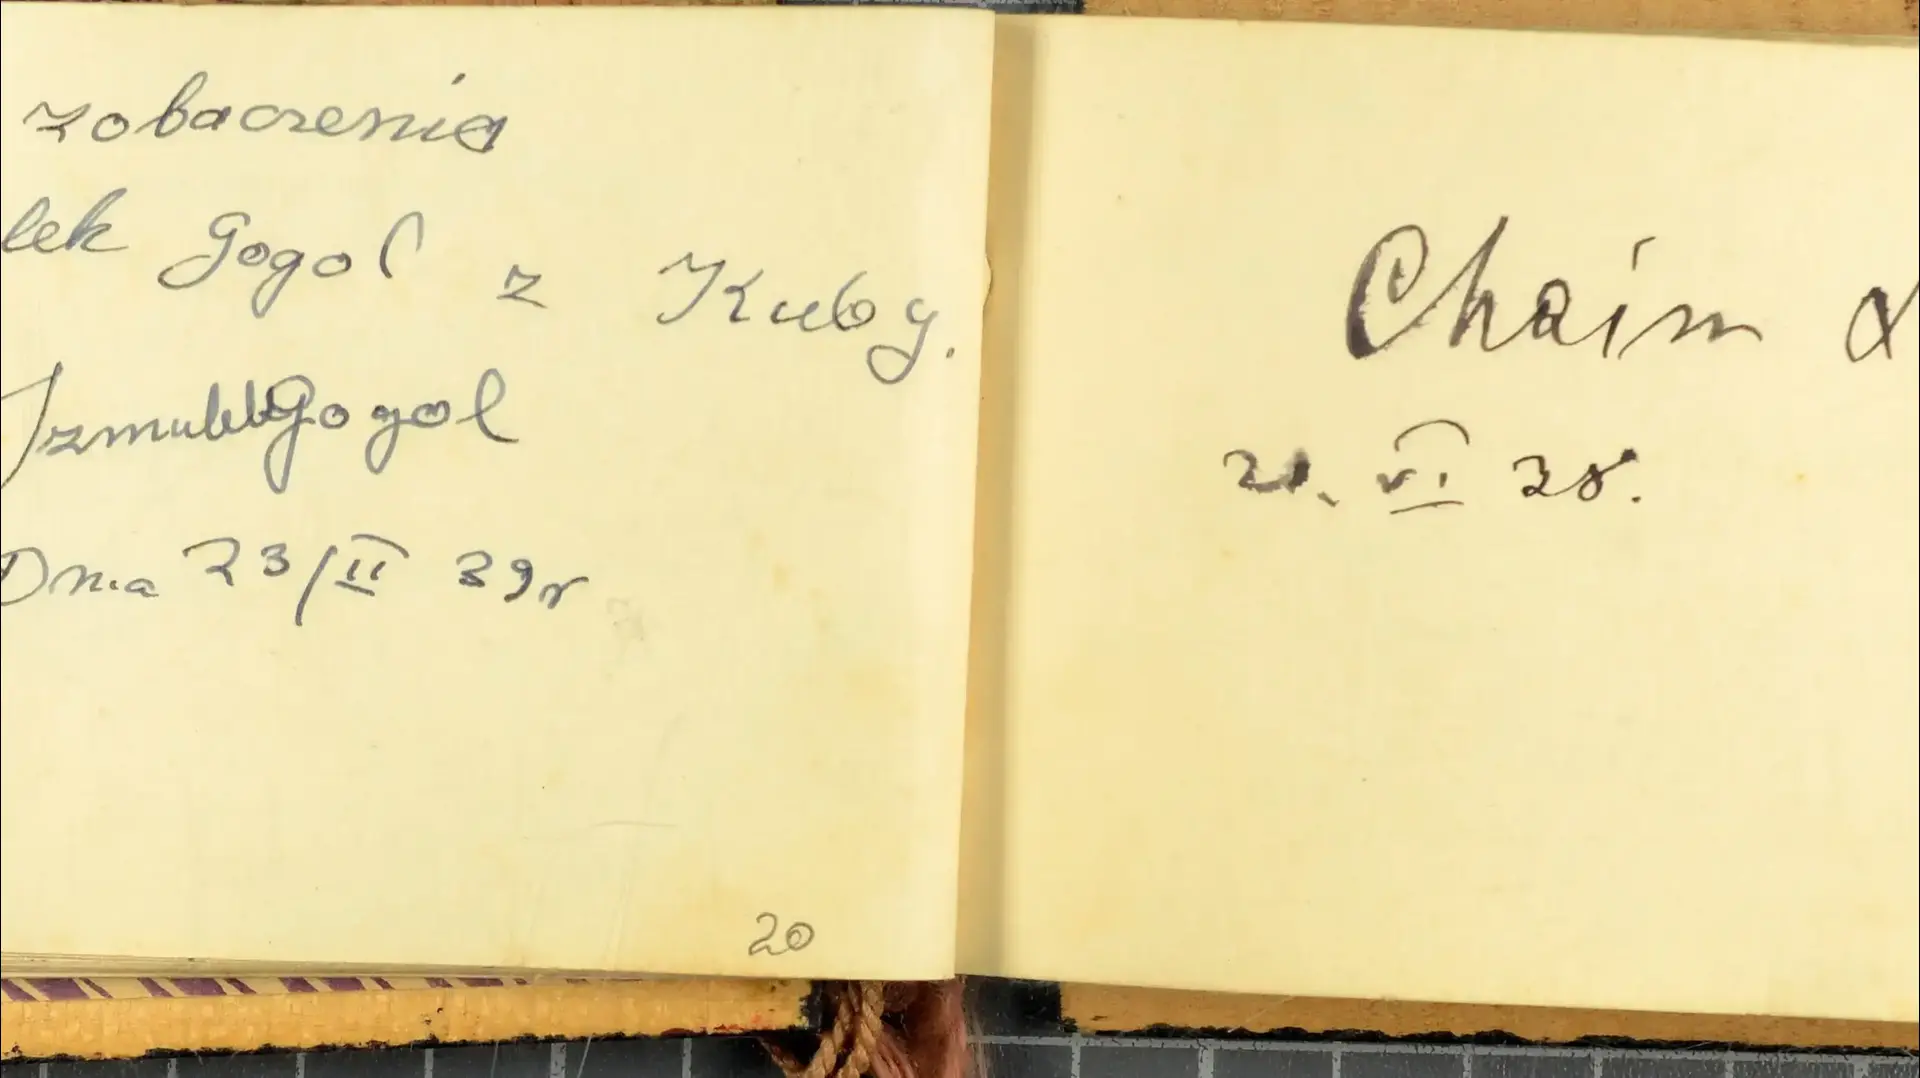 zobaczenia
lek Gogol z Kuby.
Gogol
Dnia 23/II 39r
20
Chaim
21. VI 38.